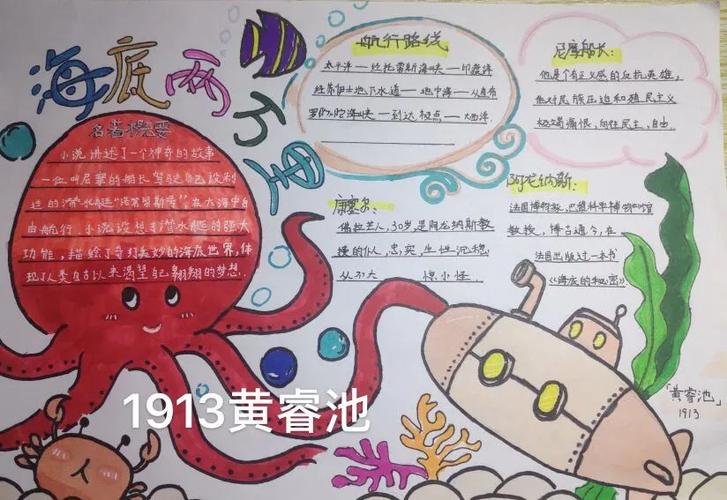 海底两万里
名著概要
小说讲述了一个神奇的故事
一位叫尼摩的船长驾驶自己设利
过的"潜水艇"诺第留斯号"在大海中自
由航行,小说设想了潜水艇的强大
功能,描绘了奇幻美妙的海底世界,体
现了人类自古以来渴望自己翱翔的梦想.
航行路线
太平洋——经托雷斯海峡——印度洋
经苏伊士地下水道——地中海——从直布
罗陀海峡——到达极点——大西洋.
尼摩船长:
他是个有正义感的反抗英雄,
他对民族压迫和殖民主义
极端痛恨,向往民主,自由.
康塞尔:
佛拉芒人,30岁是阿龙纳斯教
授的仆人 忠实,生性沉稳
从不大 惊小怪.
阿龙纳斯:
法国博物学,巴黎科学博物馆
教授,博古通今,在
法国出版过一本书
《海底的秘密》
「黄睿池」
1913
1913黄睿池